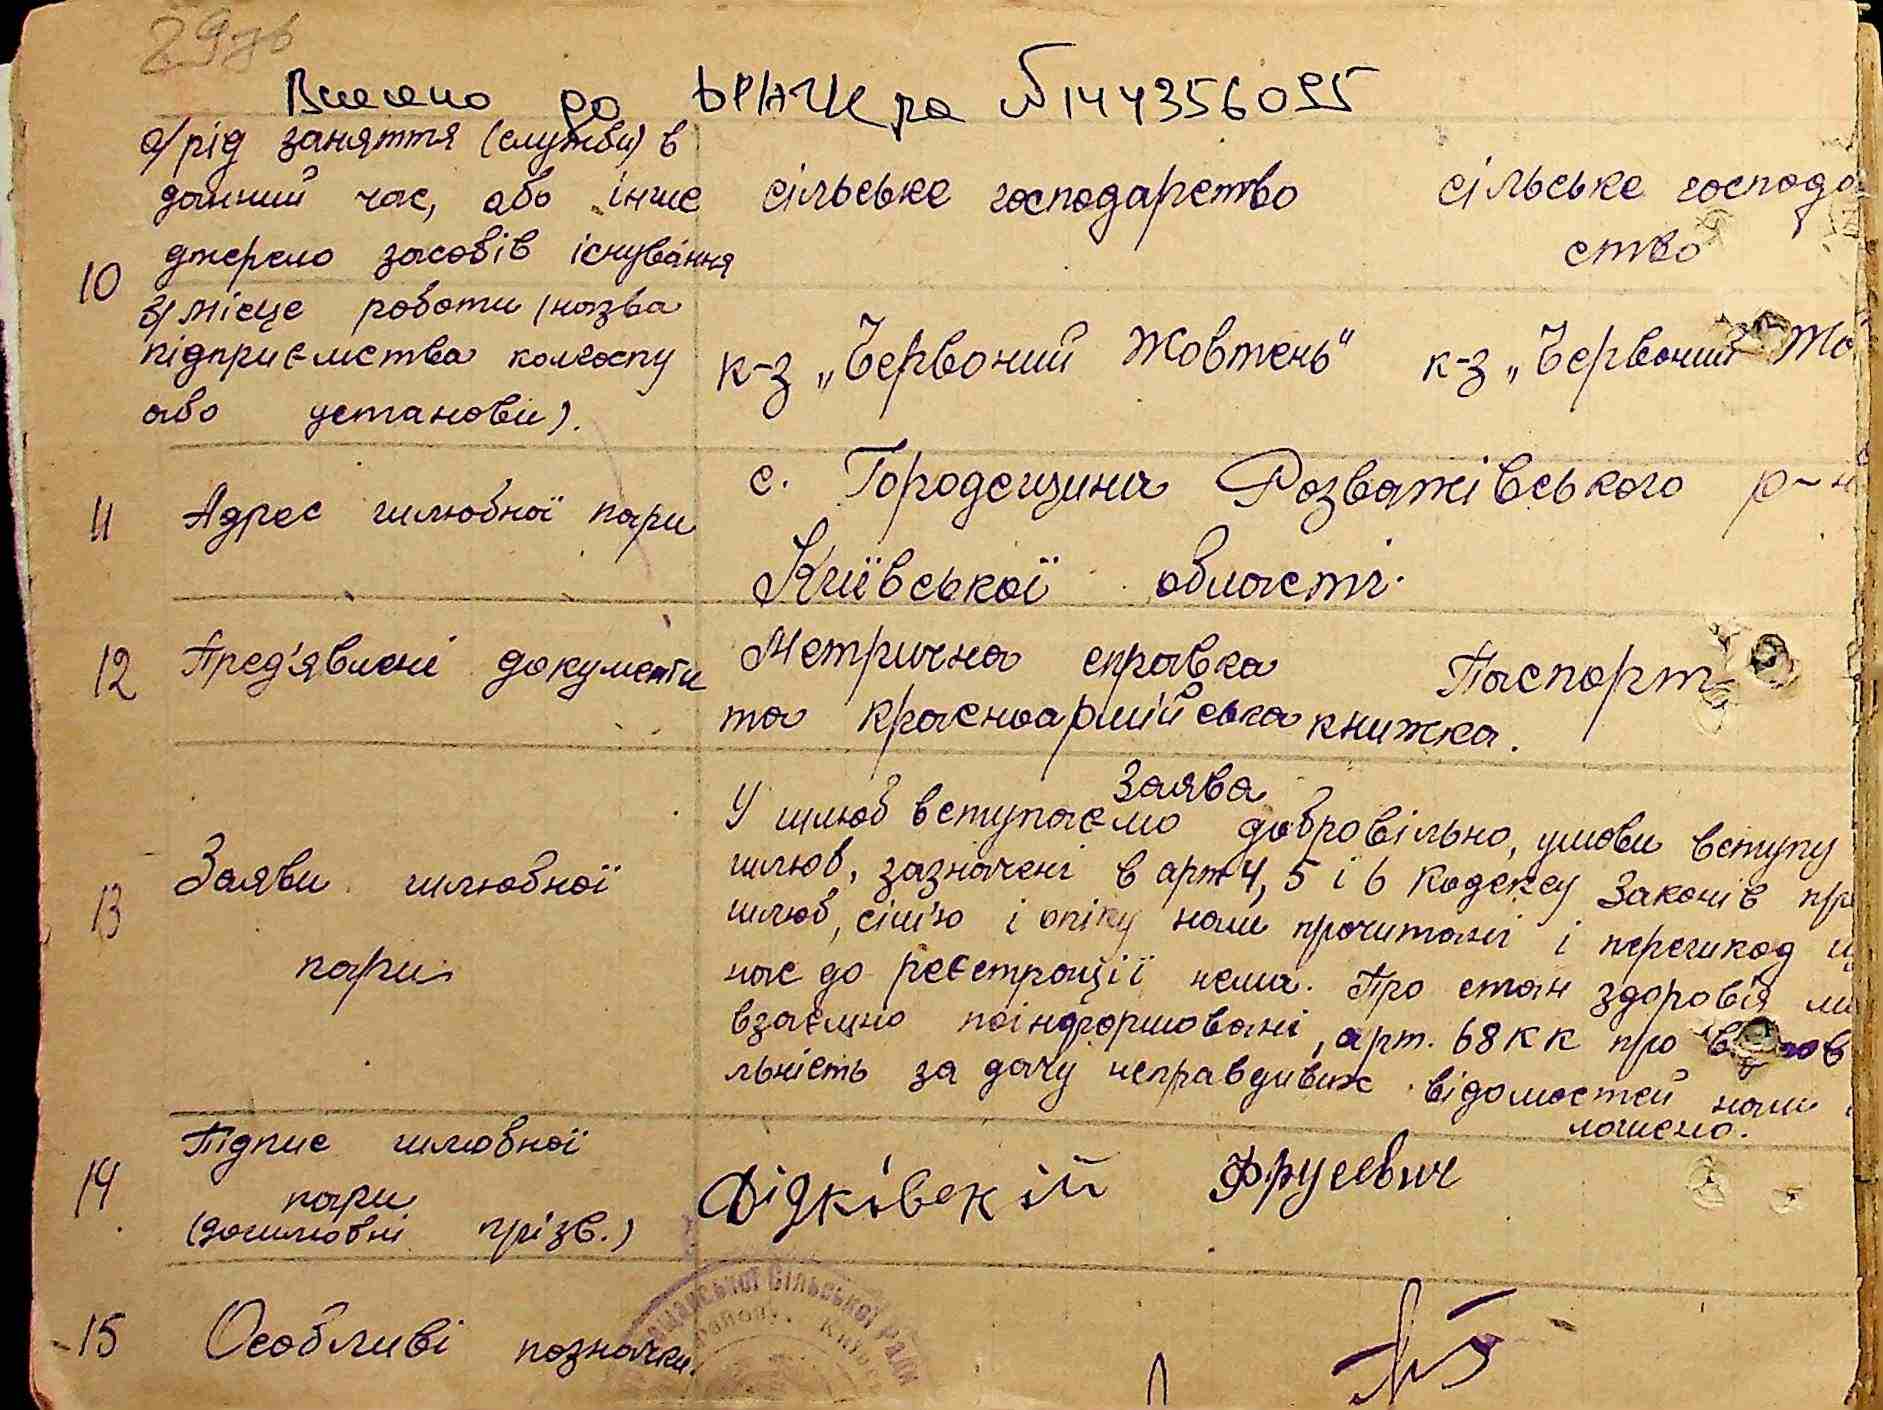 29зв
Внесено до ДРАЦС за №144356095
а/ рід заняття (служби) в
данний час, або інше сільське господарство сільське господа
джерело засобів існування ство
10
з/ місце роботи (назва
підприємства колгоспу к-з „Червоний Жовтень" к-з „Червоний Жо
або установи).
11 Адрес шлюбної пари с. Городещина Розважівського р-н
Київської області.
12 Пред'явлені документи Метрична справка Паспорт
та красноармійська книжка.
Заява
У шлюб вступаємо добровільно, умови вступу
шлюб, зазначені в арт 4, 5 і 6 Кодексу Законів пр
13 Заяви шлюбної шлюб, сім'ю і опіку нам прочитані і перешкод
пари нас до реєстрації нема. Про стан здоров'я ми
взаємно поінформовані, арт. 68 КК про в ов
льність за дачу неправдивих відомостей нам
лошено.
14 Підпис шлюбної
пари
(дошлюбні прізв.) Дідківскій Фрусевич
15 Особливі позначки.
щанської Сільської Ради
району, Київс